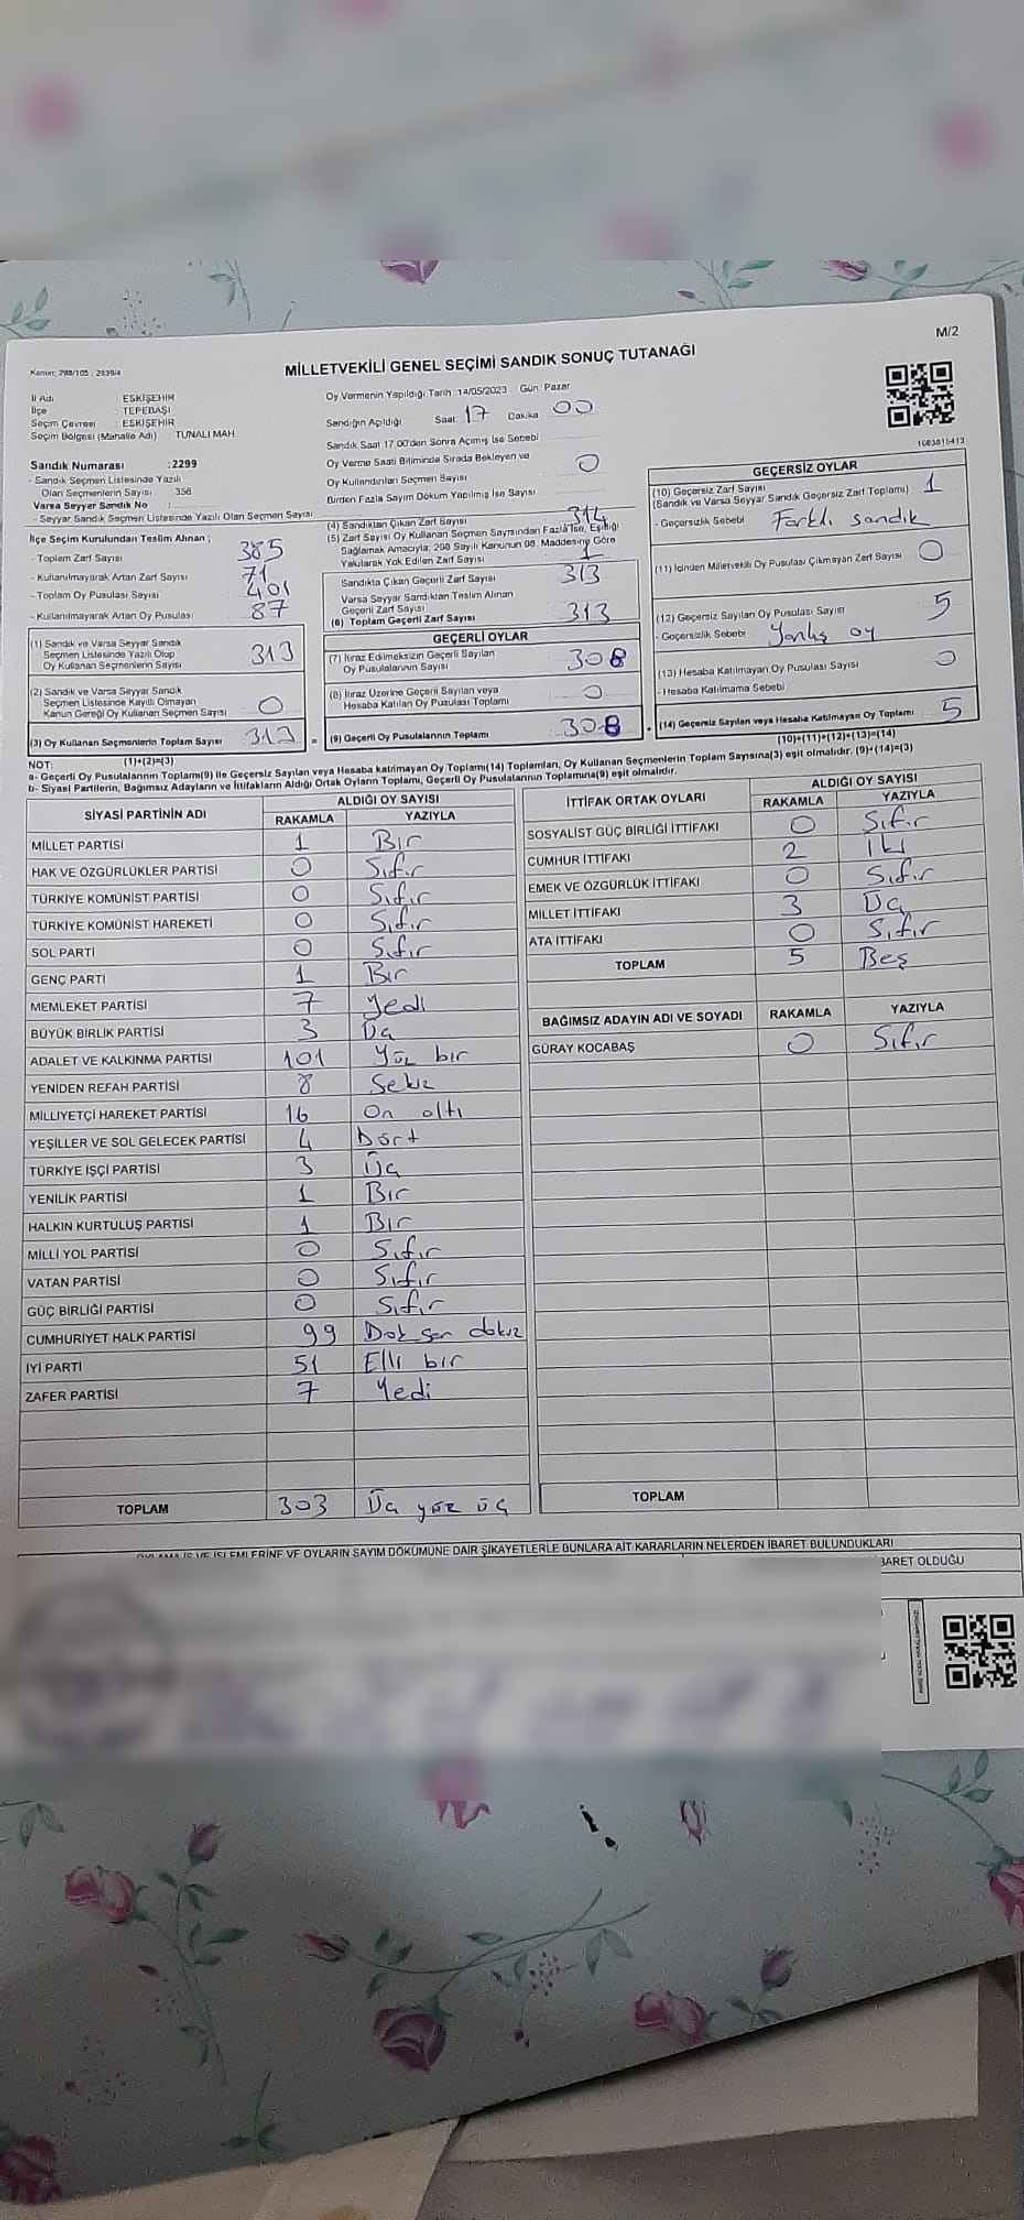 M/2
MİLLETVEKİLİ GENEL SEÇİMİ SANDIK SONUÇ TUTANAĞI
İl Adı : ESKİŞEHİR
İlçe : TEPEBAŞI
Seçim Çevresi : ESKİŞEHİR
Seçim Bölgesi (Mahalle Adı) TUNALI MAH
Sandık Numarası : 2299
- Sandık Seçmen Listesinde Yazılı
Olan Seçmenlerin Sayısı 358
Varsa Seyyar Sandık No :
- Seyyar Sandık Seçmen Listesinde Yazılı Olan Seçmen Sayısı
İlçe Seçim Kurulundan Teslim Alınan ;
- Toplam Zarf Sayısı 385
- Kullanılmayarak Artan Zarf Sayısı 71
- Toplam Oy Pusulası Sayısı 401
- Kullanılmayarak Artan Oy Pusulası 87
(1) Sandık ve Varsa Seyyar Sandık
Seçmen Listesinde Yazılı Olup
Oy Kullanan Seçmenlerin Sayısı 313
(2) Sandık ve Varsa Seyyar Sandık
Seçmen Listesinde Kayıtlı Olmayan
Kanun Gereği Oy Kullanan Seçmen Sayısı 0
(3) Oy Kullanan Seçmenlerin Toplam Sayısı 313 =
(1)+(2)=(3)
Oy Vermenin Yapıldığı Tarih 14/05/2023 Gün: Pazar
Sandığın Açıldığı Saat 17 Dakika 00
Sandık Saat 17.00'den Sonra Açılmış İse Sebebi
Oy Verme Saati Bitiminde Sırada Bekleyen ve
Oy Kullandırılan Seçmen Sayısı 0
Birden Fazla Sayım Döküm Yapılmış İse Sayısı
(4) Sandıktan Çıkan Zarf Sayısı 314
(5) Zarf Sayısı Oy Kullanan Seçmen Sayısından Fazla İse, Eşitliği
Sağlamak Amacıyla; 298 Sayılı Kanunun 98. Maddesine Göre
Yakılarak Yok Edilen Zarf Sayısı 1
Sandıkta Çıkan Geçerli Zarf Sayısı 313
Varsa Seyyar Sandıktan Teslim Alınan
Geçerli Zarf Sayısı
(6) Toplam Geçerli Zarf Sayısı 313
GEÇERLİ OYLAR
(7) İtiraz Edilmeksizin Geçerli Sayılan
Oy Pusulalarının Sayısı 308
(8) İtiraz Üzerine Geçerli Sayılan veya
Hesaba Katılan Oy Pusulası Toplamı 0
(9) Geçerli Oy Pusulalarının Toplamı 308
1083815413
GEÇERSİZ OYLAR
(10) Geçersiz Zarf Sayısı
(Sandık ve Varsa Seyyar Sandık Geçersiz Zarf Toplamı) 1
- Geçersizlik Sebebi Farklı sandık
(11) İçinden Milletvekili Oy Pusulası Çıkmayan Zarf Sayısı 0
(12) Geçersiz Sayılan Oy Pusulası Sayısı 5
- Geçersizlik Sebebi Yanlış oy
(13) Hesaba Katılmayan Oy Pusulası Sayısı 0
- Hesaba Katılmama Sebebi
(14) Geçersiz Sayılan veya Hesaba Katılmayan Oy Toplamı 5
(10)+(11)+(12)+(13)=(14)
NOT:
a- Geçerli Oy Pusulalarının Toplamı(9) ile Geçersiz Sayılan veya Hesaba katılmayan Oy Toplamı(14) Toplamları, Oy Kullanan Seçmenlerin Toplam Sayısına(3) eşit olmalıdır. (9)+(14)=(3)
b- Siyasi Partilerin, Bağımsız Adayların ve İttifakların Aldığı Ortak Oyların Toplamı, Geçerli Oy Pusulalarının Toplamına(9) eşit olmalıdır.
SİYASİ PARTİNİN ADI ALDIĞI OY SAYISI
RAKAMLA YAZIYLA
MİLLET PARTİSİ 1 Bir
HAK VE ÖZGÜRLÜKLER PARTİSİ 0 Sıfır
TÜRKİYE KOMÜNİST PARTİSİ 0 Sıfır
TÜRKİYE KOMÜNİST HAREKETİ 0 Sıfır
SOL PARTİ 0 Sıfır
GENÇ PARTİ 1 Bir
MEMLEKET PARTİSİ 7 Yedi
BÜYÜK BİRLİK PARTİSİ 3 Üç
ADALET VE KALKINMA PARTİSİ 101 Yüz bir
YENİDEN REFAH PARTİSİ 8 Sekiz
MİLLİYETÇİ HAREKET PARTİSİ 16 On altı
YEŞİLLER VE SOL GELECEK PARTİSİ 4 Dört
TÜRKİYE İŞÇİ PARTİSİ 3 Üç
YENİLİK PARTİSİ 1 Bir
HALKIN KURTULUŞ PARTİSİ 1 Bir
MİLLİ YOL PARTİSİ 0 Sıfır
VATAN PARTİSİ 0 Sıfır
GÜÇ BİRLİĞİ PARTİSİ 0 Sıfır
CUMHURİYET HALK PARTİSİ 99 Doksan dokuz
İYİ PARTİ 51 Elli bir
ZAFER PARTİSİ 7 Yedi
TOPLAM 303 Üç yüz üç
İTTİFAK ORTAK OYLARI ALDIĞI OY SAYISI
RAKAMLA YAZIYLA
SOSYALİST GÜÇ BİRLİĞİ İTTİFAKI 0 Sıfır
CUMHUR İTTİFAKI 2 İki
EMEK VE ÖZGÜRLÜK İTTİFAKI 0 Sıfır
MİLLET İTTİFAKI 3 Üç
ATA İTTİFAKI 0 Sıfır
TOPLAM 5 Beş
BAĞIMSIZ ADAYIN ADI VE SOYADI RAKAMLA YAZIYLA
GÜRAY KOCABAŞ 0 Sıfır
TOPLAM
OYLAMA İŞ VE İŞLEMLERİNE VE OYLARIN SAYIM DÖKÜMÜNE DAİR ŞİKAYETLERLE BUNLARA AİT KARARLARIN NELERDEN İBARET BULUNDUKLARI
BARET OLDUĞU